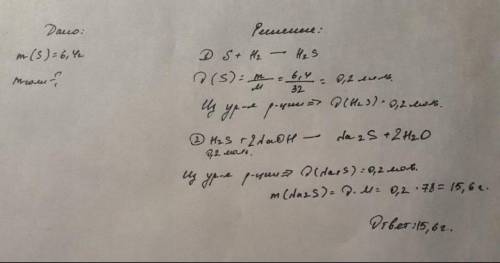 Дано:
m(S)=6,4г
mсоли-?
Решение:
① S + H₂ — H₂S
ν(S) = m/M = 6,4/32 = 0,2 моль.
Из ур-я р-ции ⇒ ν(H₂S) = 0,2 моль.
② H₂S + 2NaOH — Na₂S + 2H₂O
0,2 моль.
Из ур-я р-ции ⇒ ν(Na₂S) = 0,2 мол.
m(Na₂S) = ν · M = 0,2 · 78 = 15,6 г.
Ответ: 15,6 г.